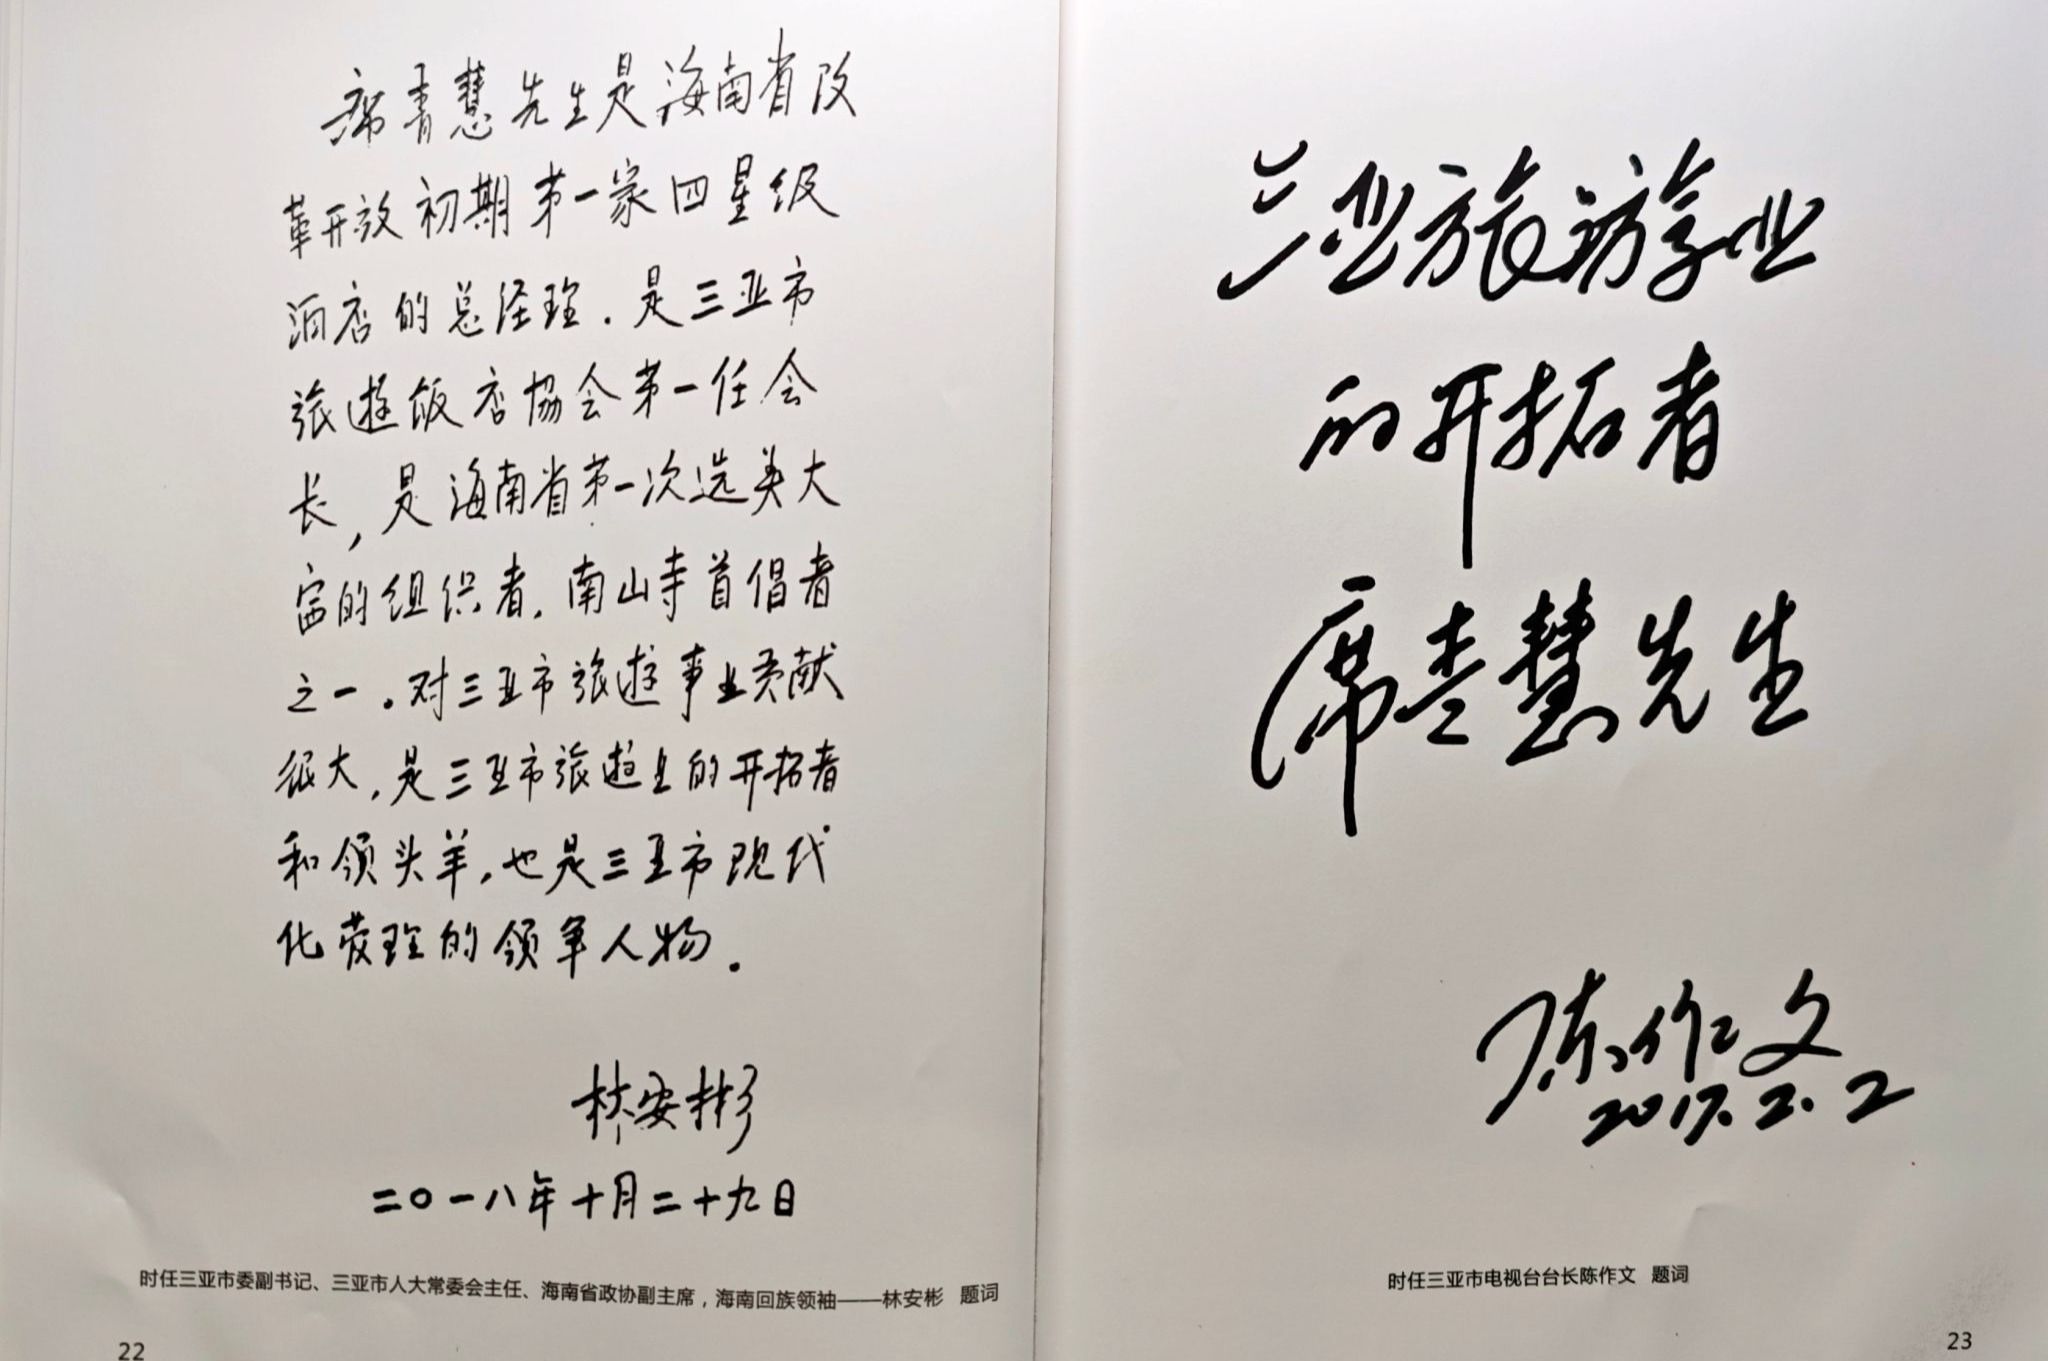 席青慧先生是海南省改
革开放初期第一家四星级
酒店的总经理.是三亚市
旅遊饭店協会第一任会
长,是海南省第一次选美大
富的组织者.南山寺首倡者
之一.对三亚市旅遊事业贡献
很大,是三亚市旅遊业的开拓者
和领头羊,也是三亚市现代
化管理的领军人物.
林安彬
二〇一八年十月二十九日
时任三亚市委副书记、三亚市人大常委会主任、海南省政协副主席，海南回族领袖——林安彬 题词
22
三亚旅游事业
的开拓者
席青慧先生
陈作文
2017.2.2
时任三亚市电视台台长陈作文 题词
23